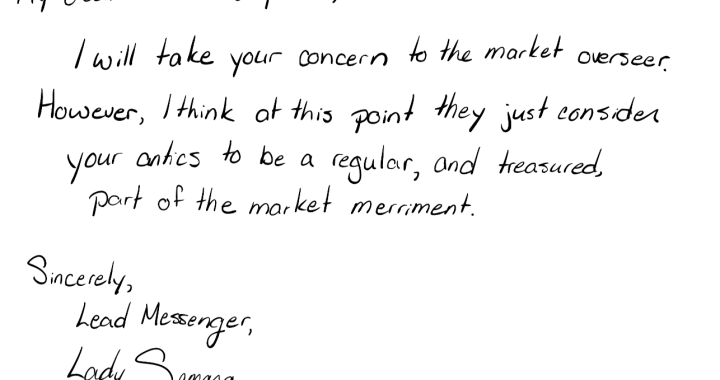 I will take your concern to the market overseer.
However, I think at this point they just consider
your antics to be a regular, and treasured,
part of the market merriment.
Sincerely,
Lead Messenger,
Lady